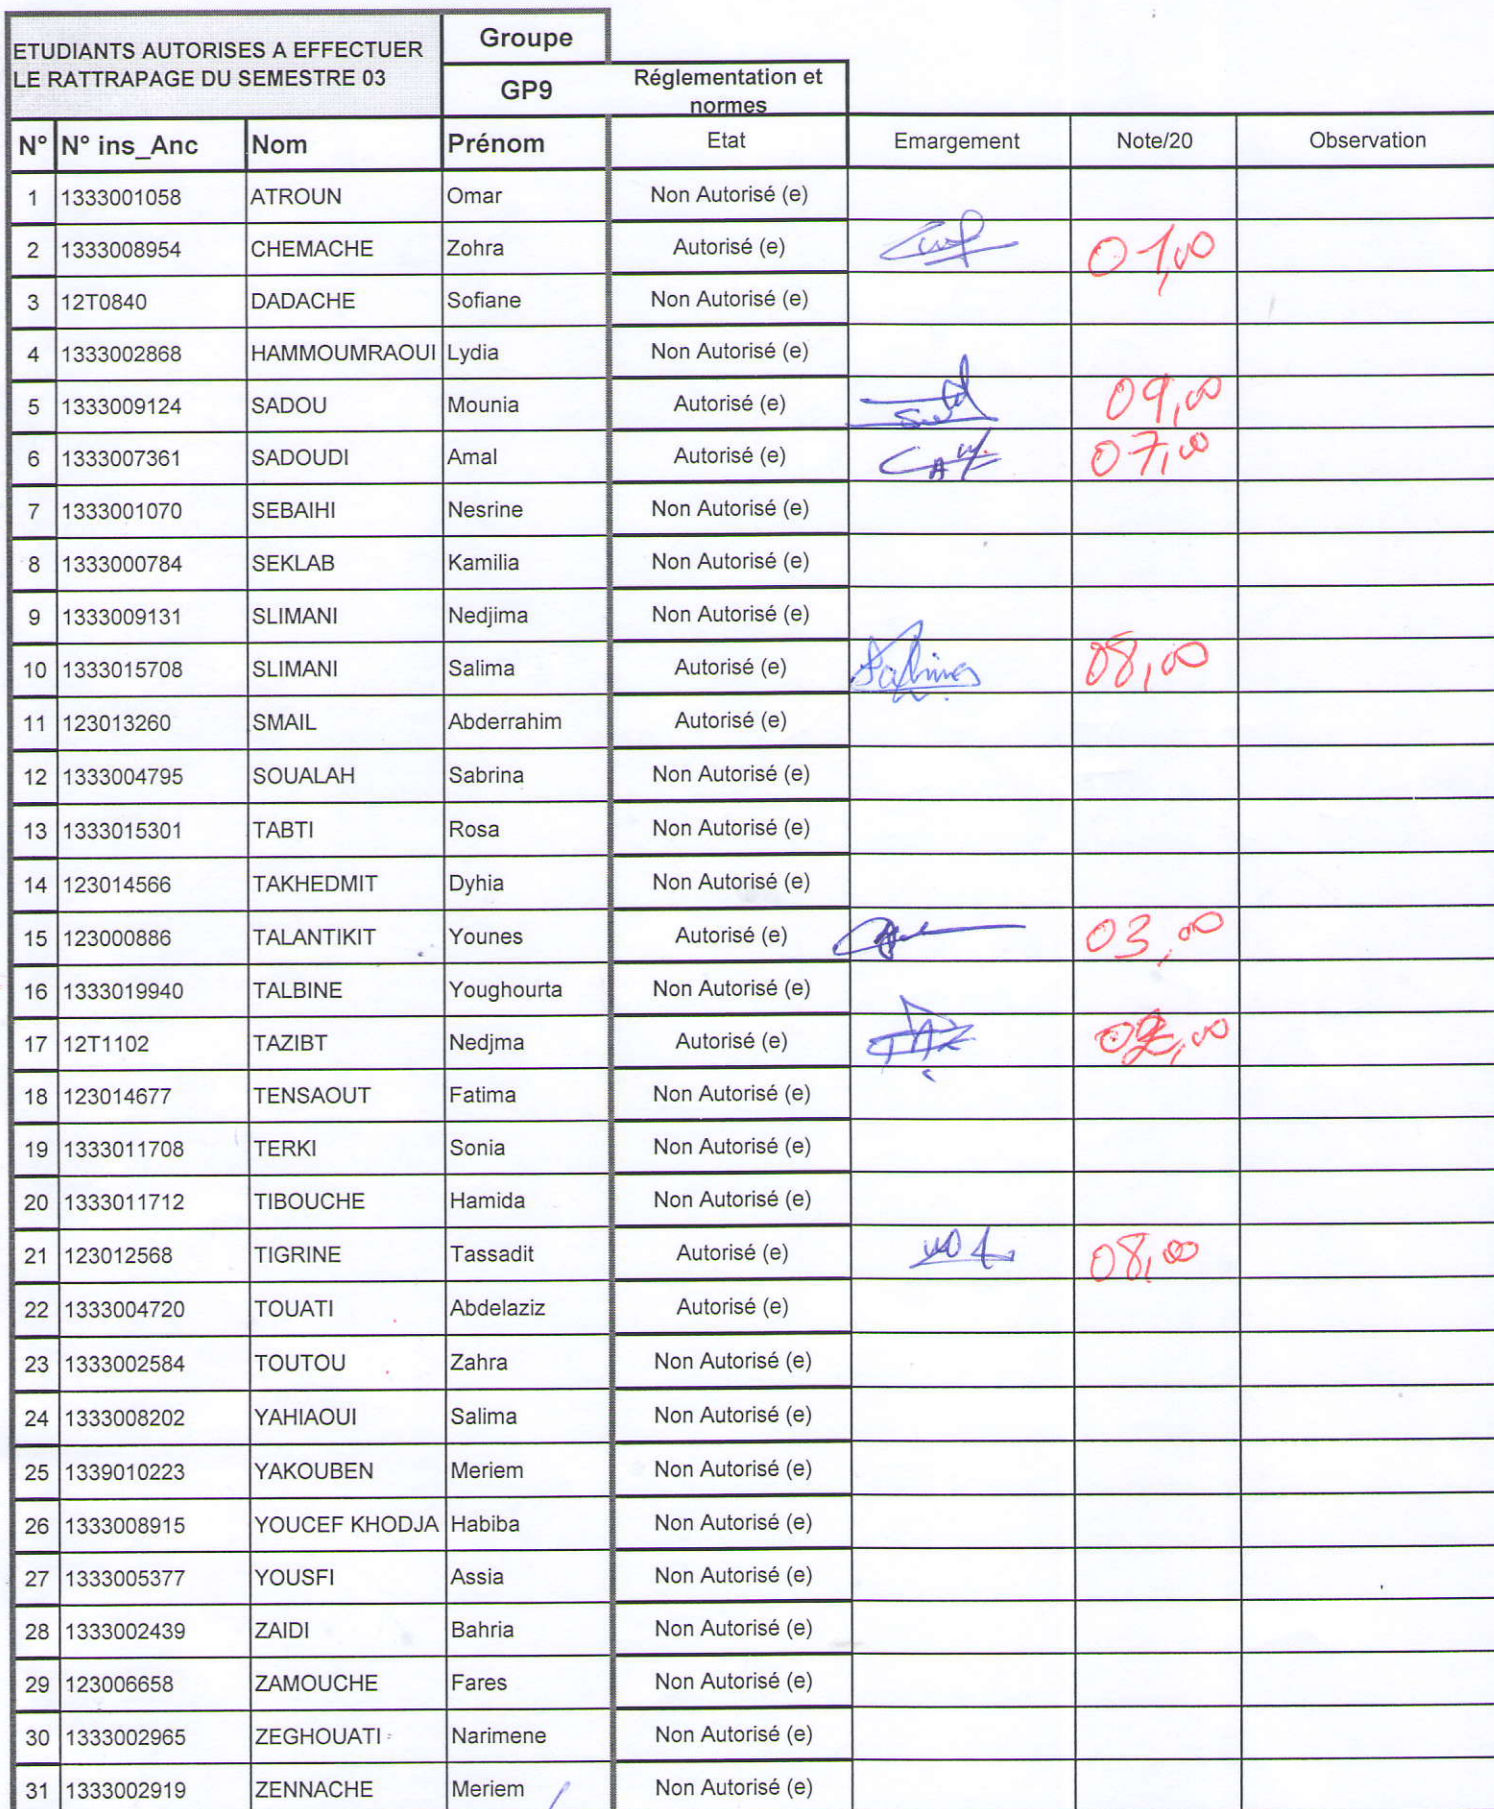 ETUDIANTS AUTORISES A EFFECTUER LE RATTRAPAGE DU SEMESTRE 03
Groupe
GP9
Réglementation et normes
N° N° ins_Anc Nom Prénom Etat Emargement Note/20 Observation
1 1333001058 ATROUN Omar Non Autorisé (e)
2 1333008954 CHEMACHE Zohra Autorisé (e) 01,00
3 12T0840 DADACHE Sofiane Non Autorisé (e)
4 1333002868 HAMMOUMRAOUI Lydia Non Autorisé (e)
5 1333009124 SADOU Mounia Autorisé (e) 09,00
6 1333007361 SADOUDI Amal Autorisé (e) 07,00
7 1333001070 SEBAIHI Nesrine Non Autorisé (e)
8 1333000784 SEKLAB Kamilia Non Autorisé (e)
9 1333009131 SLIMANI Nedjima Non Autorisé (e)
10 1333015708 SLIMANI Salima Autorisé (e) 08,00
11 123013260 SMAIL Abderrahim Autorisé (e)
12 1333004795 SOUALAH Sabrina Non Autorisé (e)
13 1333015301 TABTI Rosa Non Autorisé (e)
14 123014566 TAKHEDMIT Dyhia Non Autorisé (e)
15 123000886 TALANTIKIT Younes Autorisé (e) 03,00
16 1333019940 TALBINE Youghourta Non Autorisé (e)
17 12T1102 TAZIBT Nedjma Autorisé (e)
18 123014677 TENSAOUT Fatima Non Autorisé (e)
19 1333011708 TERKI Sonia Non Autorisé (e)
20 1333011712 TIBOUCHE Hamida Non Autorisé (e)
21 123012568 TIGRINE Tassadit Autorisé (e) 08,00
22 1333004720 TOUATI Abdelaziz Autorisé (e)
23 1333002584 TOUTOU Zahra Non Autorisé (e)
24 1333008202 YAHIAOUI Salima Non Autorisé (e)
25 1339010223 YAKOUBEN Meriem Non Autorisé (e)
26 1333008915 YOUCEF KHODJA Habiba Non Autorisé (e)
27 1333005377 YOUSFI Assia Non Autorisé (e)
28 1333002439 ZAIDI Bahria Non Autorisé (e)
29 123006658 ZAMOUCHE Fares Non Autorisé (e)
30 1333002965 ZEGHOUATI Narimene Non Autorisé (e)
31 1333002919 ZENNACHE Meriem Non Autorisé (e)